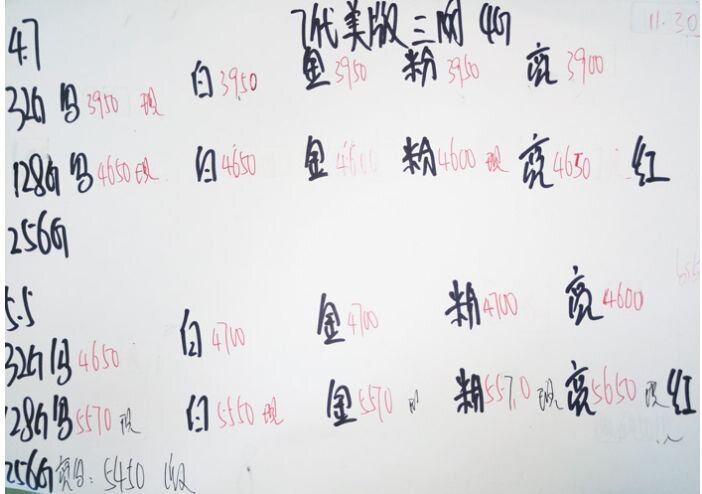 7代美版三网 4G 11.30
4.7
32G 黑 3950 现 白 3950 金 3950 粉 3950 亮 3900
128G 黑 4650 现 白 4650 金 4600 粉 4600 现 亮 4650 红
256G
5.5
32G 黑 4650 白 4700 金 4700 粉 4700 亮 4600
128G 黑 5570 现 白 5550 现 金 5570 粉 5570 现 亮 5650 现 红
256G 亮白: 5450